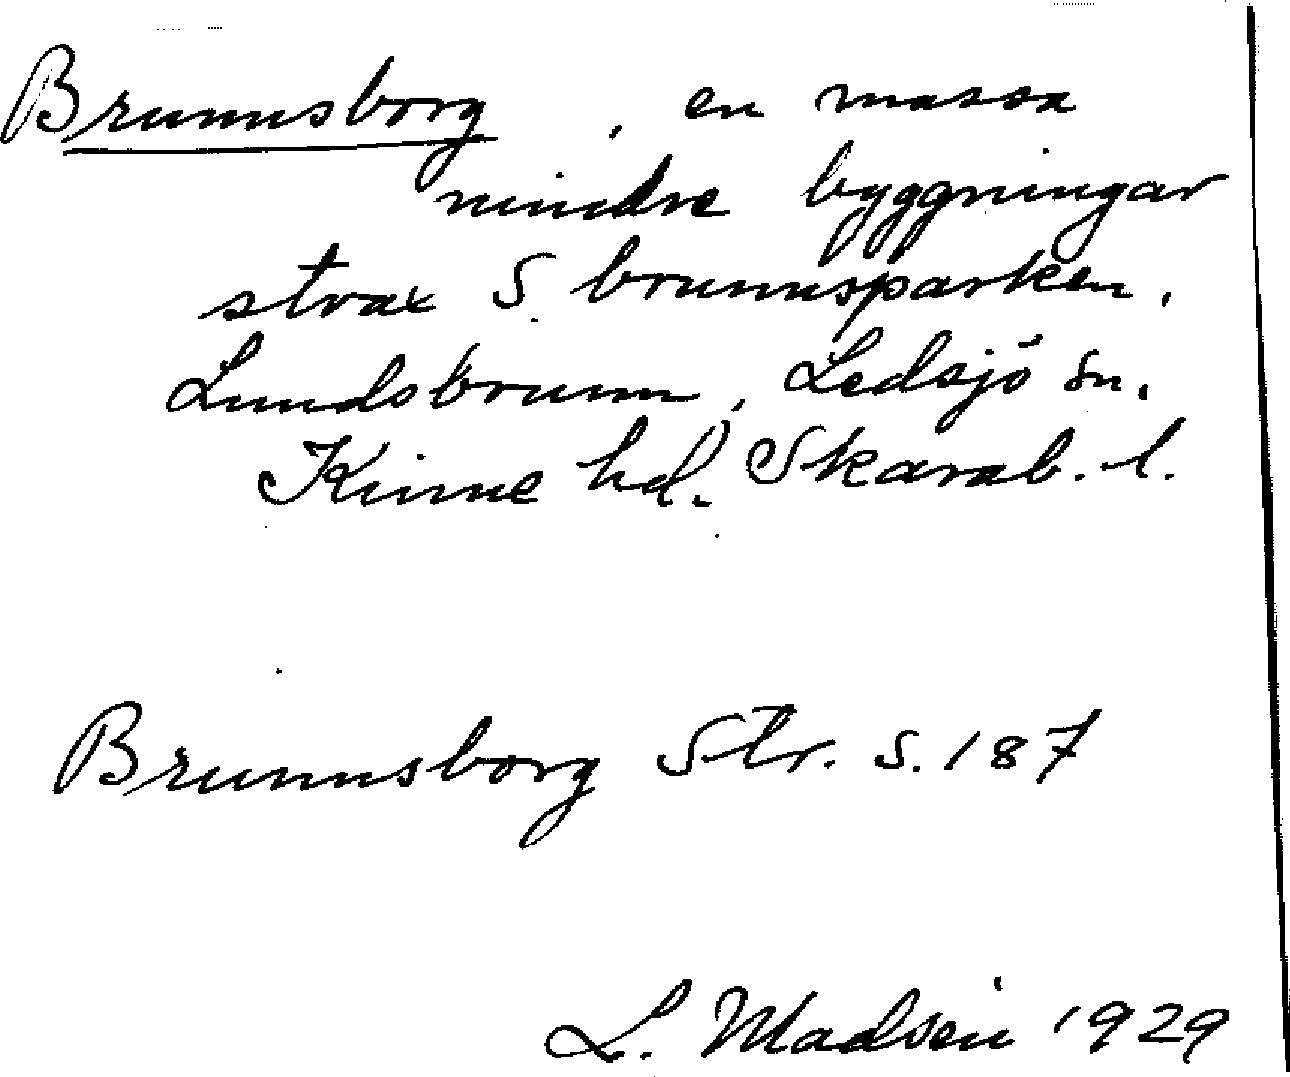 Brunnsborg, en massa
mindre byggningar
strax S brunnsparken.
Lundsbrunn, Ledsjö sn.
Kinne hd. Skarab. l.
Brunnsborg Str. s. 187
L. Madsén 1929